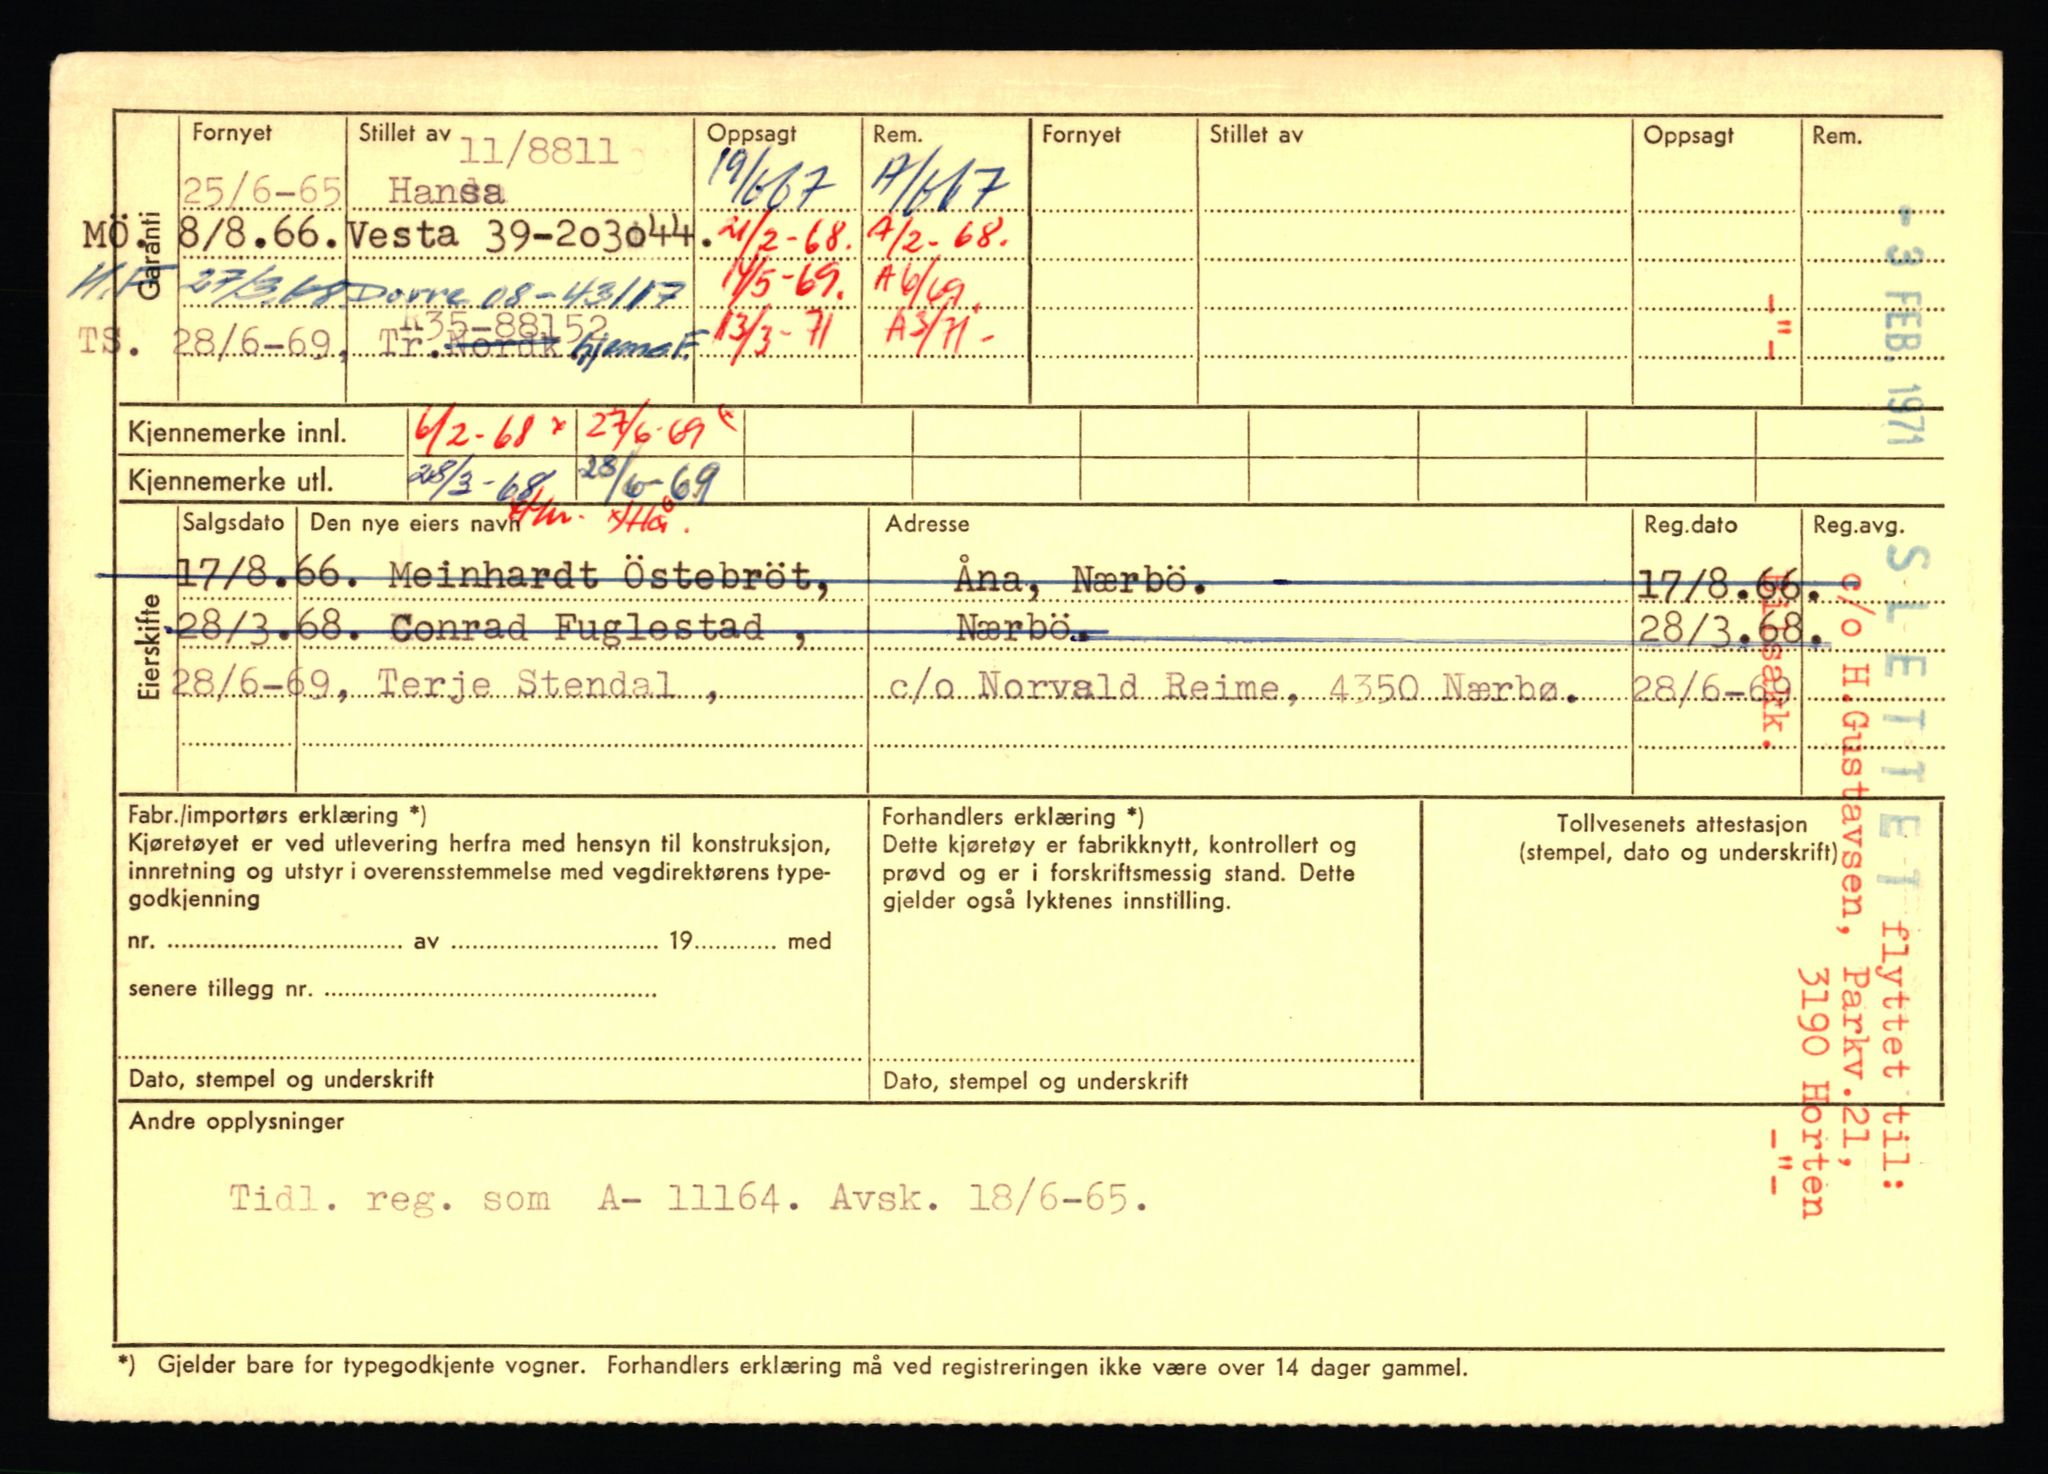 Garanti
Fornyet Stillet av Oppsagt Rem. Fornyet Stillet av Oppsagt Rem.
11/8811
25/6-65 Hansa 19/6 67 A/6 67
MÖ. 8/8.66. Vesta 39-203044. 21/2-68. A/2-68.
H.F 27/3.68 Dovre 08-43117 14/5-69. A6/69.
R35-88152
TS. 28/6-69, Tr. Nordk Hjemo F. 13/3-71 A3/71 -
Kjennemerke innl. 6/2-68 x 27/6-69 x
Kjennemerke utl. 28/3-68 28/6-69
x/Hå.
Eierskifte
Salgsdato Den nye eiers navn Adresse Reg.dato Reg.avg.
17/8.66. Meinhardt Östebröt, Åna, Nærbö. - 17/8.66.
28/3.68. Conrad Fuglestad , Nærbö. 28/3.68.
28/6-69, Terje Stendal , c/o Norvald Reime, 4350 Nærbø. 28/6-69
Fabr./importørs erklæring *)
Kjøretøyet er ved utlevering herfra med hensyn til konstruksjon,
innretning og utstyr i overensstemmelse med vegdirektørens type-
godkjenning
nr. ........ av ........ 19........ med
senere tillegg nr. ........
Dato, stempel og underskrift
Forhandlers erklæring *)
Dette kjøretøy er fabrikknytt, kontrollert og
prøvd og er i forskriftsmessig stand. Dette
gjelder også lyktenes innstilling.
Dato, stempel og underskrift
Tollvesenets attestasjon
(stempel, dato og underskrift)
Andre opplysninger
Tidl. reg. som A- 11164. Avsk. 18/6-65.
*) Gjelder bare for typegodkjente vogner. Forhandlers erklæring må ved registreringen ikke være over 14 dager gammel.
- 3 FEB. 1971 SLETTET flyttet til:
c/o H.Gustavsen, Parkv.21,
3190 Horten
-"- -"-